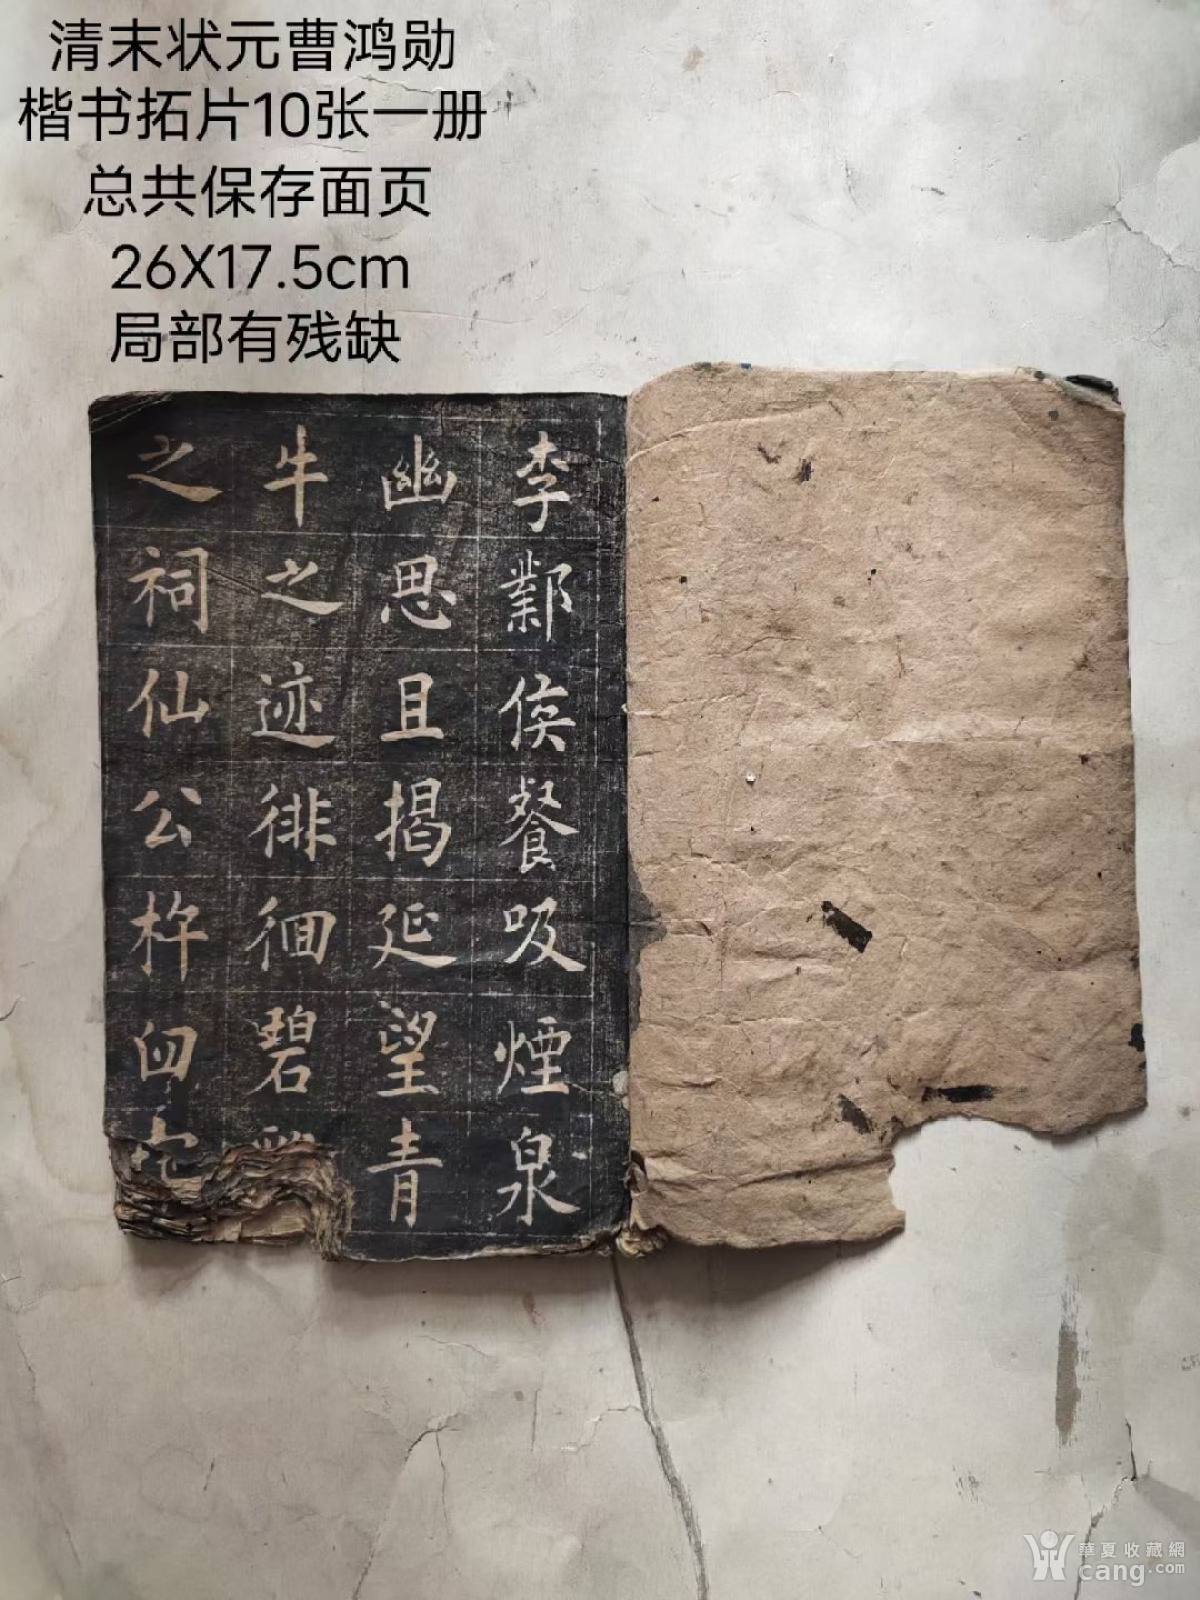 清末状元曹鸿勋
楷书拓片10张一册
总共保存面页
26X17.5cm
局部有残缺
李鄴侯餐吸煙泉
幽思且揭延望青
牛之迹徘徊碧
之祠仙公杵臼
華夏收藏網
cang.com